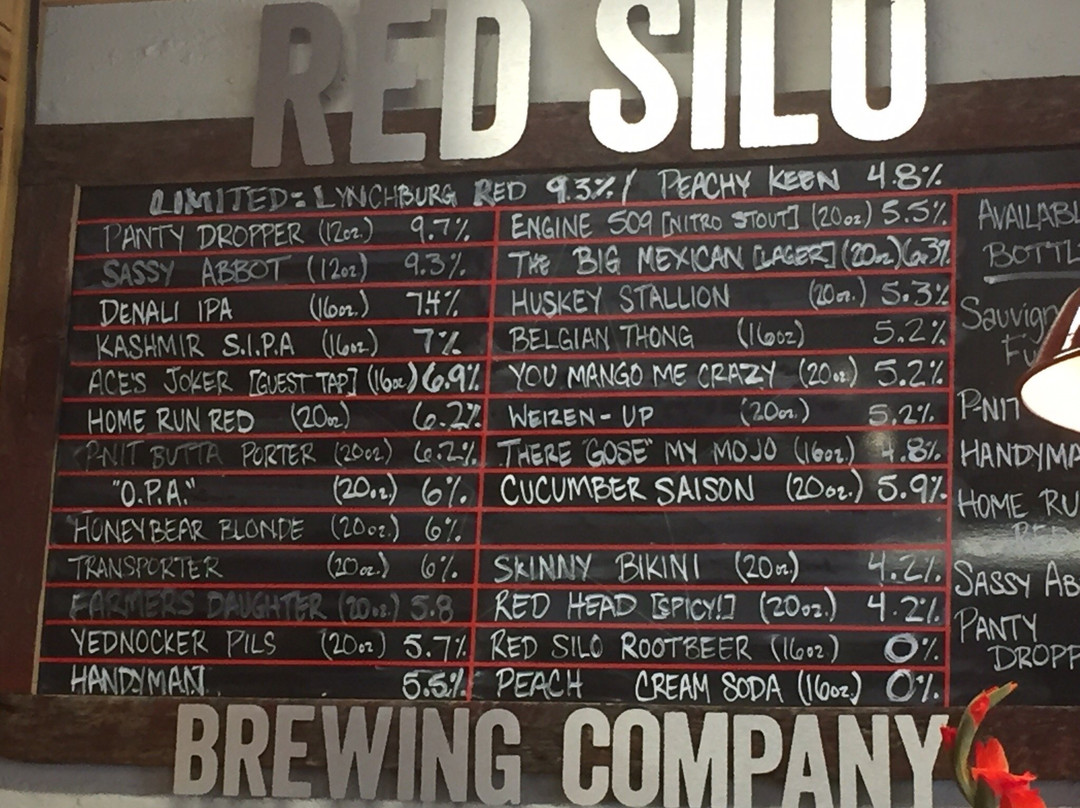 RED SILO
LIMITED: LYNCHBURG RED 9.3% / PEACHY KEEN 4.8%
PANTY DROPPER (12oz.) 9.7%
SASSY ABBOT (12oz) 9.3%
DENALI IPA (16oz.) 7.4%
KASHMIR S.I.P.A (16oz.) 7%
ACE'S JOKER [GUEST TAP] (16oz.) 6.9%
HOME RUN RED (20oz) 6.2%
P-NIT BUTTA PORTER (20oz) 6.2%
"O.P.A." (20oz.) 6%
HONEYBEAR BLONDE (20oz.) 6%
TRANSPORTER (20oz.) 6%
FARMERS DAUGHTER (20oz.) 5.8
YEDNOCKER PILS (20oz) 5.7%
HANDYMAN 5.5%
ENGINE 509 [NITRO STOUT] (20oz) 5.5%
THE BIG MEXICAN [LAGER] (20oz) 6.3%
HUSKEY STALLION (20oz.) 5.3%
BELGIAN THONG (16oz) 5.2%
YOU MANGO ME CRAZY (20oz) 5.2%
WEIZEN-UP (20oz.) 5.2%
THERE "GOSE" MY MOJO (16oz.) 4.8%
CUCUMBER SAISON (20oz.) 5.9%
SKINNY BIKINI (20oz.) 4.2%
RED HEAD [SPICY!] (20oz.) 4.2%
RED SILO ROOTBEER (16oz) 0%
PEACH CREAM SODA (16oz.) 0%
AVAILABL
BOTTL
Sauvign
Fu
P-NIT
HANDYMA
HOME RU
RED
SASSY AB
PANTY
DROPP
BREWING COMPANY